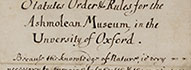 Statutes Orders & Rules for the
Ashmolean Museum in the
University of Oxford.
Because the knowledge of Nature is very